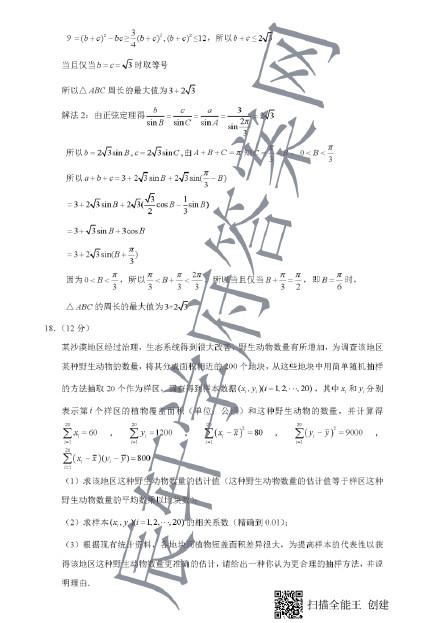 9 = (b+c)² − bc ≥ 3/4 (b+c)², (b+c)² ≤12，所以 b+c ≤ 2√3
当且仅当 b = c = √3 时取等号
所以△ABC 周长的最大值为 3+2√3
解法 2：由正弦定理得 b/sin B = c/sin C = a/sin A = 3/sin 2π/3 = 2√3
所以 b = 2√3 sin B, c = 2√3 sin C, 由 A + B + C = π 0 < B < π/3
所以 a + b + c = 3 + 2√3 sin B + 2√3 sin(π/3 − B)
= 3 + 2√3 sin B + 2√3(√3/2 cos B − 1/2 sin B)
= 3 + √3 sin B + 3cos B
= 3 + 2√3 sin(B + π/3)
因为 0 < B < π/3，所以 π/3 < B + π/3 < 2π/3，所以当且仅当 B + π/3 = π/2，即 B = π/6 时，
△ABC 的周长的最大值为 3+2√3
18.（12 分）
某沙漠地区经过治理，生态系统得到很大改善，野生动物数量有所增加，为调查该地区
某种野生动物的数量，将其分成面积相近的 200 个地块，从这些地块中用简单随机抽样
的方法抽取 20 个作为样区，调查得到样本数据 (xᵢ, yᵢ)(i = 1,2,⋯,20)，其中 xᵢ 和 yᵢ 分别
表示第 i 个样区的植物覆盖面积（单位：公顷）和这种野生动物的数量，并计算得
∑xᵢ = 60 ， ∑yᵢ = 1200 ， ∑(xᵢ − x̄)² = 80 ， ∑(yᵢ − ȳ)² = 9000 ，
∑(xᵢ − x̄)(yᵢ − ȳ) = 800
（1）求该地区这种野生动物数量的估计值（这种野生动物数量的估计值等于样区这种
野生动物数量的平均数乘以地块数）；
（2）求样本 (xᵢ, yᵢ)(i = 1,2,⋯,20) 的相关系数（精确到 0.01）；
（3）根据现有统计资料，各地块间植物覆盖面积差异很大，为提高样本的代表性以获
得该地区这种野生动物数量更准确的估计，请给出一种你认为更合理的抽样方法，并说
明理由.
辰轩学府答案网
扫描全能王 创建